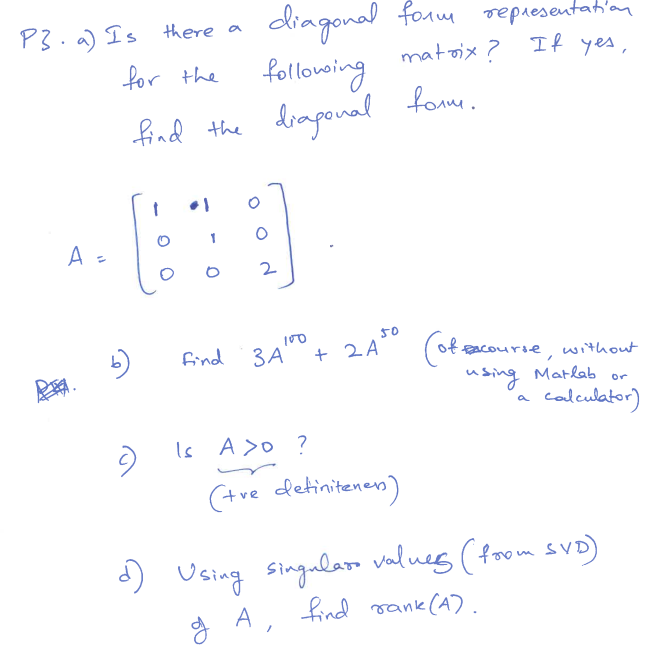 P3. a) Is there a diagonal form representation
for the following matrix? If yes,
find the diagonal form.
A = [ 1 1 0
0 1 0
0 0 2 ].
b) find 3A^100 + 2A^50 (of course, without
using Matlab or
a calculator)
c) Is A>0 ?
(+ve definiteness)
d) Using singular values (from SVD)
of A, find rank(A).